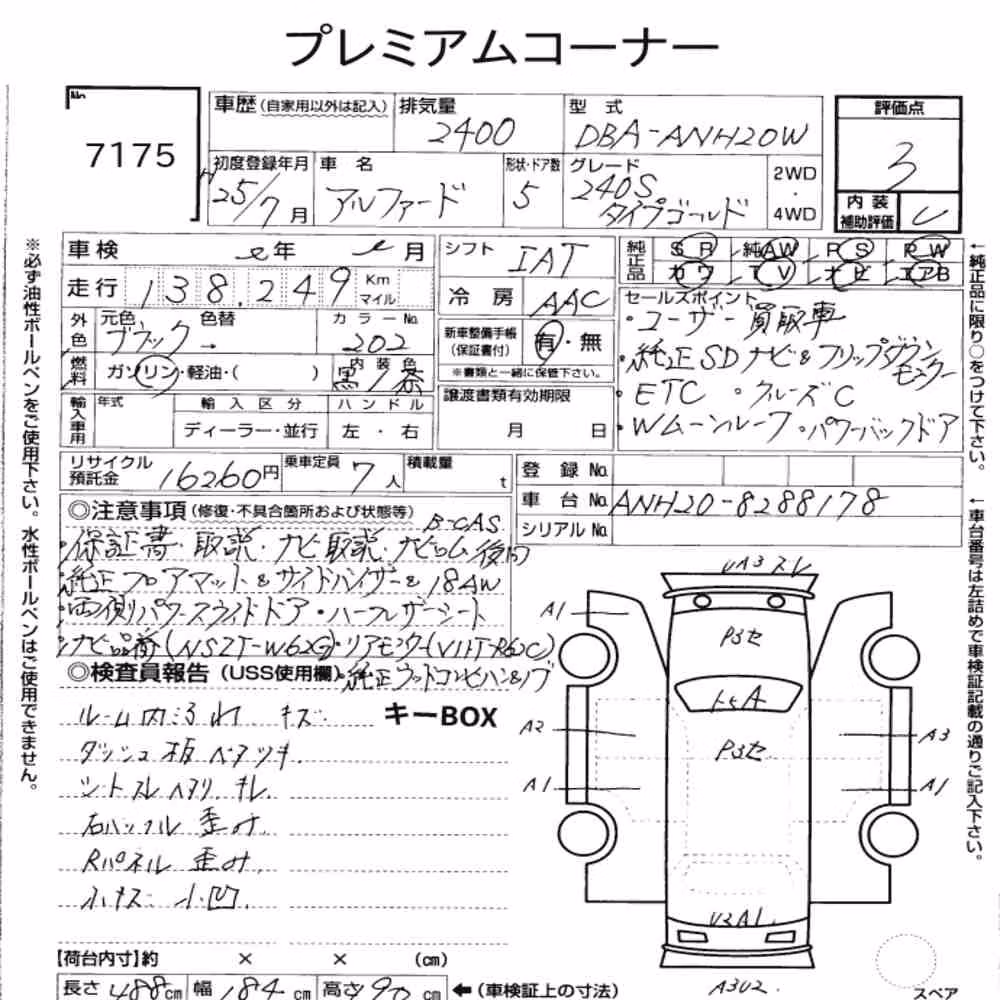 プレミアムコーナー
No.
7175
車歴(自家用以外は記入)
排気量
2400
型式
DBA-ANH20W
評価点
3
初度登録年月
25/7月
車名
アルファード
形状・ドア数
5
グレード
240S
タイプゴールド
2WD
・
4WD
内装
補助評価
C
車検
年
月
走行
138,249
Km
マイル
シフト
IAT
冷房
AAC
純正品
SR
純AW
PS
PW
カワ
TV
ナビ
エアB
外色
元色
ブラック
色替
→
カラーNo.
202
新車整備手帳
(保証書付)
有・無
※書類と一緒に保管下さい。
燃料
ガソリン・軽油・( )
内装色
黒/茶
セールスポイント
・ユーザー買取車
・純正SDナビ&フリップダウンモニター
・ETC ・クルーズC
・Wムーンルーフ・パワーバックドア
輸入車用
年式
輸入区分
ハンドル
ディーラー・並行
左・右
譲渡書類有効期限
月 日
リサイクル
預託金
16260円
乗車定員
7人
積載量
t
登録No.
車台No.
ANH20-8288178
シリアルNo.
◎注意事項(修復・不具合箇所および状態等)
B-CAS
・保証書・取説・ナビ取説・ナビロム後日
・純正フロアマット&サイドバイザー&18AW
・両側パワースライドドア・ハーフレザーシート
・ナビ品番(NSZT-W62G)・リアモニター(V11T-R62C)
・純正ウッドコンビハン&ノブ
◎検査員報告(USS使用欄)
キーBOX
ルーム内ヨゴレ キズ
ダッシュ板ベタツキ
シートスレ ヘタリ キレ
右バックル 歪み
Rパネル 歪み
小キズ 小凹
UA3 スレ
A1
P3セ
トビA
A2
P3セ
A3
A1
A1
U2A1
A3U2
スペア
【荷台内寸】約 × × (cm)
長さ 488cm
幅 184cm
高さ
cm
←(車検証上の寸法)
※必ず油性ボールペンをご使用下さい。水性ボールペンはご使用できません。
←純正品に限り○をつけて下さい。
←車台番号は左詰めで車検証記載の通りご記入下さい。